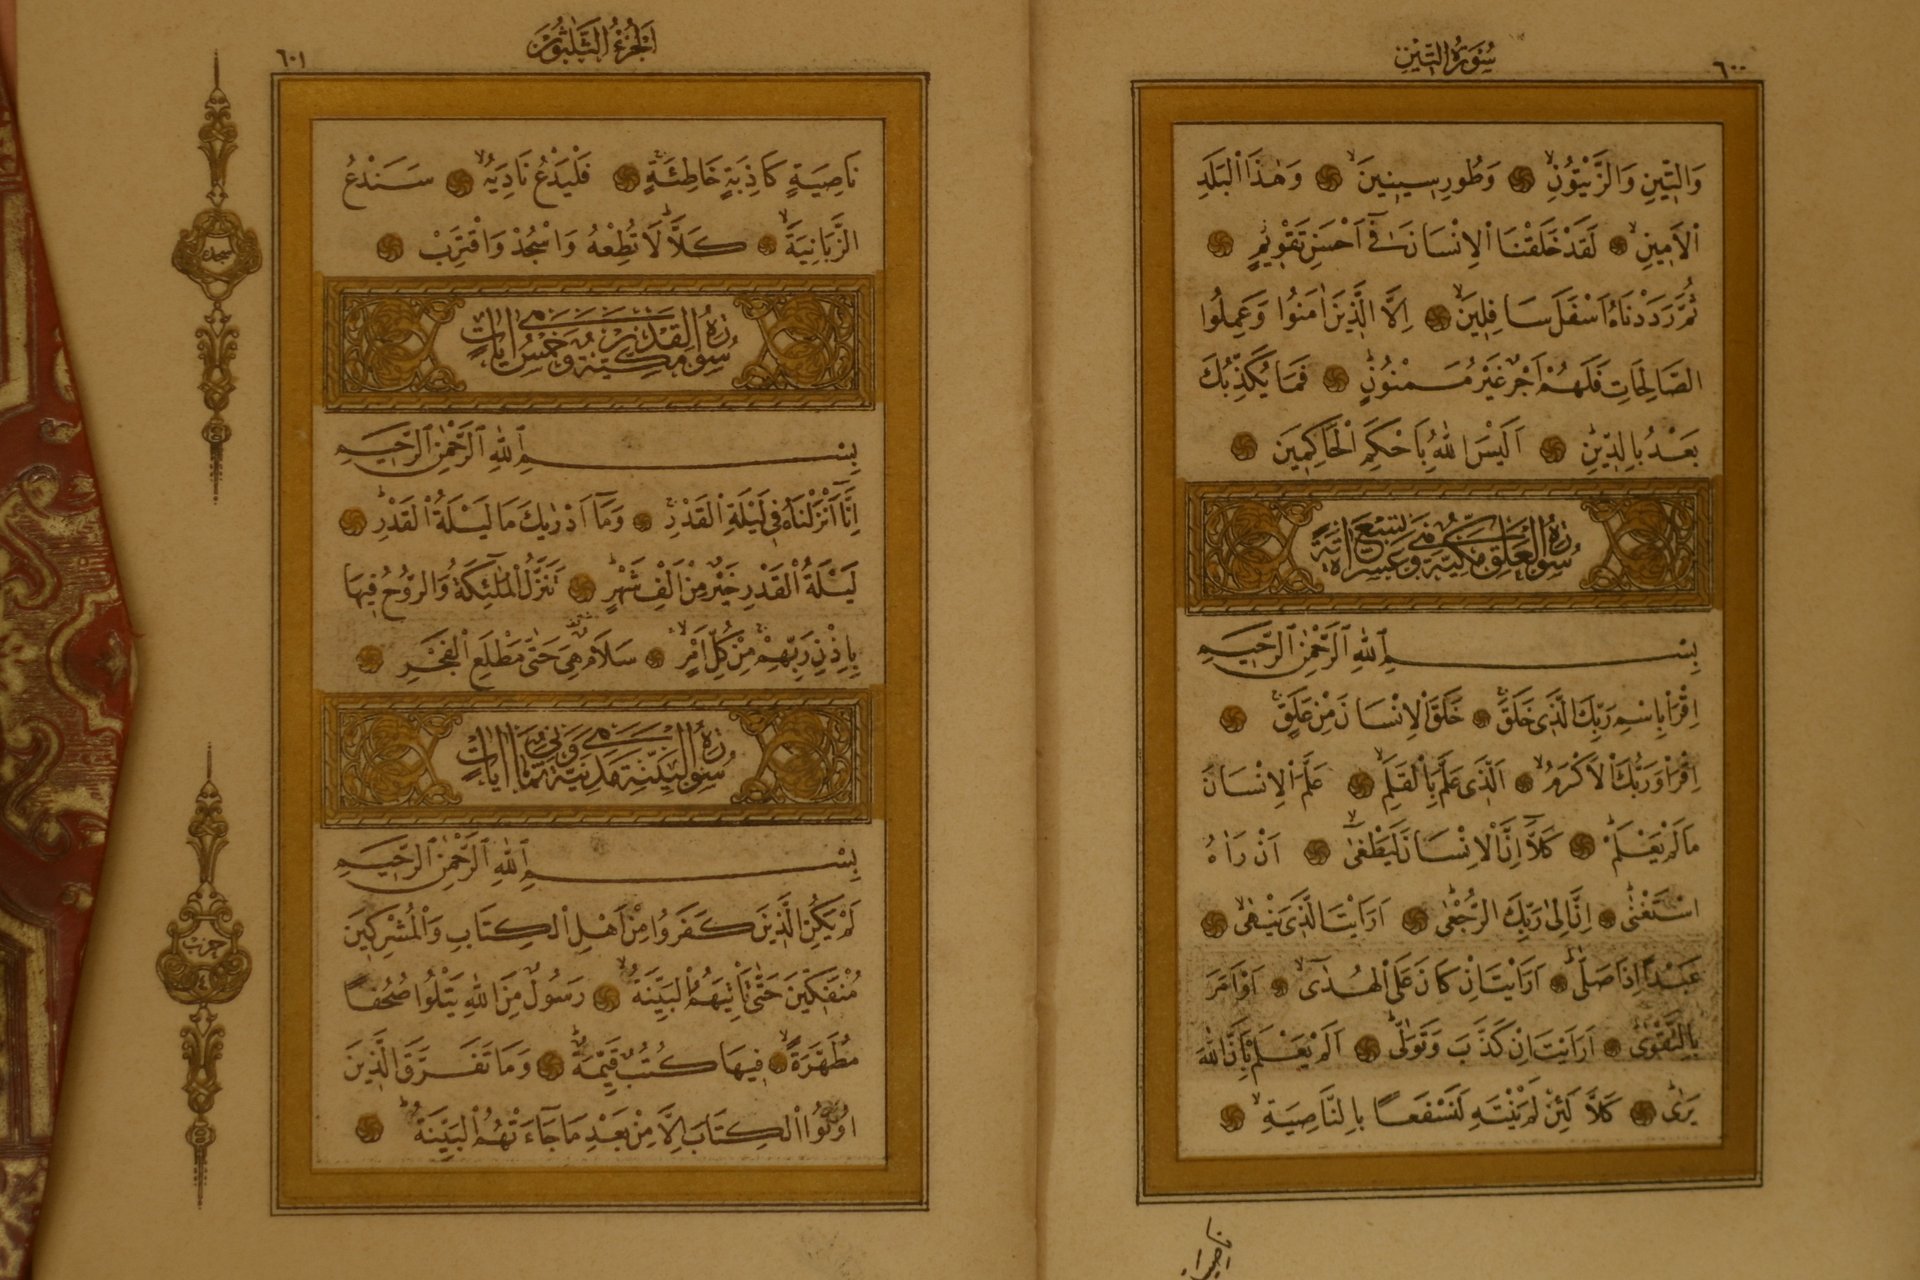 سُورَةُ التِّينِ
٦٠٠
وَالتِّينِ وَالزَّيْتُونِۙ وَطُورِ سِينِينَۙ وَهٰذَا الْبَلَدِ
الْاَمِينِۙ لَقَدْ خَلَقْنَا الْاِنْسَانَ فِٓى اَحْسَنِ تَقْوِيمٍ
ثُمَّ رَدَدْنَاهُ اَسْفَلَ سَافِلِينَۙ اِلَّا الَّذِينَ اٰمَنُوا وَعَمِلُوا
الصَّالِحَاتِ فَلَهُمْ اَجْرٌ غَيْرُ مَمْنُونٍۜ فَمَا يُكَذِّبُكَ
بَعْدُ بِالدِّينِ اَلَيْسَ اللهُ بِاَحْكَمِ الْحَاكِمِينَ
سُورَةُ الْعَلَقِ مَكِّيَّةٌ وَهِىَ تِسْعَ عَشْرَةَ اٰيَةً
بِسْمِ اللهِ الرَّحْمٰنِ الرَّحِيمِ
اِقْرَاْ بِاسْمِ رَبِّكَ الَّذِى خَلَقَۚ خَلَقَ الْاِنْسَانَ مِنْ عَلَقٍۚ
اِقْرَاْ وَرَبُّكَ الْاَكْرَمُۙ اَلَّذِى عَلَّمَ بِالْقَلَمِۙ عَلَّمَ الْاِنْسَانَ
مَالَمْ يَعْلَمْۜ كَلَّٓا اِنَّ الْاِنْسَانَ لَيَطْغٰىۙ اَنْ رَاٰهُ
اسْتَغْنٰىۜ اِنَّ اِلٰى رَبِّكَ الرُّجْعٰىۜ اَرَاَيْتَ الَّذِى يَنْهٰىۙ
عَبْدًا اِذَا صَلّٰىۜ اَرَاَيْتَ اِنْ كَانَ عَلَى الْهُدٰىۙ اَوْ اَمَرَ
بِالتَّقْوٰىۜ اَرَاَيْتَ اِنْ كَذَّبَ وَتَوَلّٰىۜ اَلَمْ يَعْلَمْ بِاَنَّ اللهَ
يَرٰىۜ كَلَّا لَئِنْ لَمْ يَنْتَهِ لَنَسْفَعًا بِالنَّاصِيَةِۙ
ناصية
اَلْجُزْءُ الثَّلٰثُونَ
٦٠١
نَاصِيَةٍ كَاذِبَةٍ خَاطِئَةٍۚ فَلْيَدْعُ نَادِيَهُۙ سَنَدْعُ
الزَّبَانِيَةَۙ كَلَّاۜ لَا تُطِعْهُ وَاسْجُدْ وَاقْتَرِبْ
سجده
سُورَةُ الْقَدْرِ مَكِّيَّةٌ وَهِىَ خَمْسُ اٰيَاتٍ
بِسْمِ اللهِ الرَّحْمٰنِ الرَّحِيمِ
اِنَّٓا اَنْزَلْنَاهُ فِى لَيْلَةِ الْقَدْرِۚ وَمَٓا اَدْرٰيكَ مَا لَيْلَةُ الْقَدْرِۜ
لَيْلَةُ الْقَدْرِ خَيْرٌ مِنْ اَلْفِ شَهْرٍۜ تَنَزَّلُ الْمَلٰٓئِكَةُ وَالرُّوحُ فِيهَا
بِاِذْنِ رَبِّهِمْۚ مِنْ كُلِّ اَمْرٍۙ سَلَامٌ۠ هِىَ حَتّٰى مَطْلَعِ الْفَجْرِ
سُورَةُ الْبَيِّنَةِ مَدَنِيَّةٌ وَهِىَ ثَمَانِى اٰيَاتٍ
بِسْمِ اللهِ الرَّحْمٰنِ الرَّحِيمِ
لَمْ يَكُنِ الَّذِينَ كَفَرُوا مِنْ اَهْلِ الْكِتَابِ وَالْمُشْرِكِينَ
مُنْفَكِّينَ حَتّٰى تَاْتِيَهُمُ الْبَيِّنَةُۙ رَسُولٌ مِنَ اللهِ يَتْلُوا صُحُفًا
مُطَهَّرَةًۙ فِيهَا كُتُبٌ قَيِّمَةٌۜ وَمَا تَفَرَّقَ الَّذِينَ
اُوتُوا الْكِتَابَ اِلَّا مِنْ بَعْدِ مَا جَٓاءَتْهُمُ الْبَيِّنَةُۜ
حزب
٤